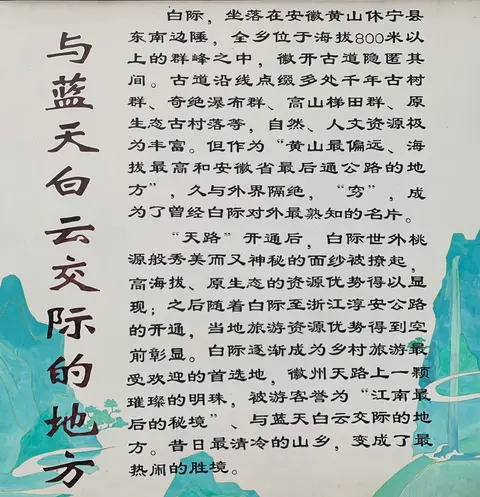 与蓝天白云交际的地方
白际，坐落在安徽黄山休宁县
东南边陲，全乡位于海拔800米以
上的群峰之中，徽开古道隐匿其
间。古道沿线点缀多处千年古树
群、奇绝瀑布群、高山梯田群、原
生态古村落等，自然、人文资源极
为丰富。但作为“黄山最偏远、海
拔最高和安徽省最后通公路的地
方”，久与外界隔绝，“穷”，成
为了曾经白际对外最熟知的名片。
“天路”开通后，白际世外桃
源般秀美而又神秘的面纱被撩起，
高海拔、原生态的资源优势得以显
现；之后随着白际至浙江淳安公路
的开通，当地旅游资源优势得到空
前彰显。白际逐渐成为乡村旅游最
受欢迎的首选地，徽州天路上一颗
璀璨的明珠，被游客誉为“江南最
后的秘境”、与蓝天白云交际的地
方。昔日最清冷的山乡，变成了最
热闹的胜境。